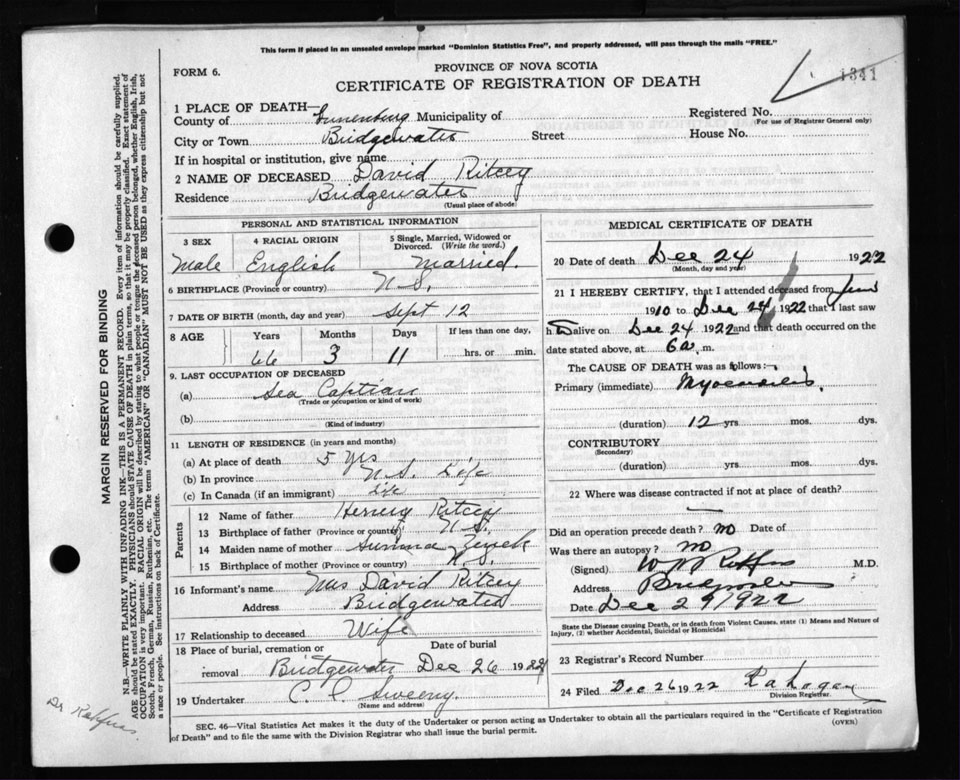 This form if placed in an unsealed envelope marked "Dominion Statistics Free", and properly addressed, will pass through the mails "FREE."
FORM 6.
PROVINCE OF NOVA SCOTIA
CERTIFICATE OF REGISTRATION OF DEATH
1341
1 PLACE OF DEATH—
County of Lunenburg Municipality of
Registered No.
(For use of Registrar General only)
City or Town Bridgewater Street House No.
If in hospital or institution, give name
2 NAME OF DECEASED David Ritcey
Residence Bridgewater
(Usual place of abode)
PERSONAL AND STATISTICAL INFORMATION
3 SEX 4 RACIAL ORIGIN 5 Single, Married, Widowed or Divorced. (Write the word.)
Male English Married.
6 BIRTHPLACE (Province or country) N.S.
7 DATE OF BIRTH (month, day and year) Sept 12
8 AGE Years Months Days If less than one day,
66 3 11 hrs. or min.
9. LAST OCCUPATION OF DECEASED
(a) Sea Captian
(Trade or occupation or kind of work)
(b)
(Kind of industry)
11 LENGTH OF RESIDENCE (in years and months)
(a) At place of death 5 yrs
(b) In province N.S. Life
(c) In Canada (if an immigrant) Life
Parents
12 Name of father Ritcey
13 Birthplace of father (Province or country) N.S.
14 Maiden name of mother
15 Birthplace of mother N.S.
16 Informant's name Mrs David Ritcey
Address Bridgewater
17 Relationship to deceased Wife
18 Place of burial, cremation or removal Date of burial
Bridgewater Dec 26 1922
19 Undertaker C. C. Sweeny.
(Name and address)
MEDICAL CERTIFICATE OF DEATH
20 Date of death Dec 24 1922
(Month, day and year)
21 I HEREBY CERTIFY, that I attended deceased from
1910 to Dec 24, 1922 that I last saw
h alive on Dec 24 1922 and that death occurred on the
date stated above, at 6 a. m.
The CAUSE OF DEATH was as follows:—
Primary (immediate) Myocarditis.
(duration) 12 yrs. mos. dys.
CONTRIBUTORY
(Secondary)
(duration) yrs. mos. dys.
22 Where was disease contracted if not at place of death?
—
Did an operation precede death? no Date of
Was there an autopsy? no
(Signed) M.D.
Address Bridgewater
Date Dec 29 1922
State the Disease causing Death, or in death from Violent Causes, state (1) Means and Nature of
Injury, (2) whether Accidental, Suicidal or Homicidal
23 Registrar's Record Number
24 Filed Dec 26 1922
Division Registrar.
SEC. 46—Vital Statistics Act makes it the duty of the Undertaker or person acting as Undertaker to obtain all the particulars required in the "Certificate of Registration
of Death" and to file the same with the Division Registrar who shall issue the burial permit.
(OVER)
MARGIN RESERVED FOR BINDING
N.B.—WRITE PLAINLY WITH UNFADING INK—THIS IS A PERMANENT RECORD. Every item of information should be carefully supplied.
AGE should be stated EXACTLY. PHYSICIANS should STATE CAUSE OF DEATH in plain terms, so that it may be properly classified. Exact statement of
OCCUPATION is very important. RACIAL ORIGIN will be described by stating to what people or tongue the deceased person belonged, whether English, Irish,
Scotch, French, German, Russian, Ruthenian, etc. The terms "AMERICAN" or "CANADIAN" MUST NOT BE USED as they express citizenship but not
a race or people. See instructions on back of Certificate.